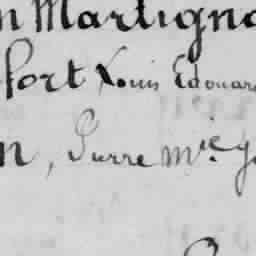 n Martigna
fort Louis Edouar
n, Surre Mie